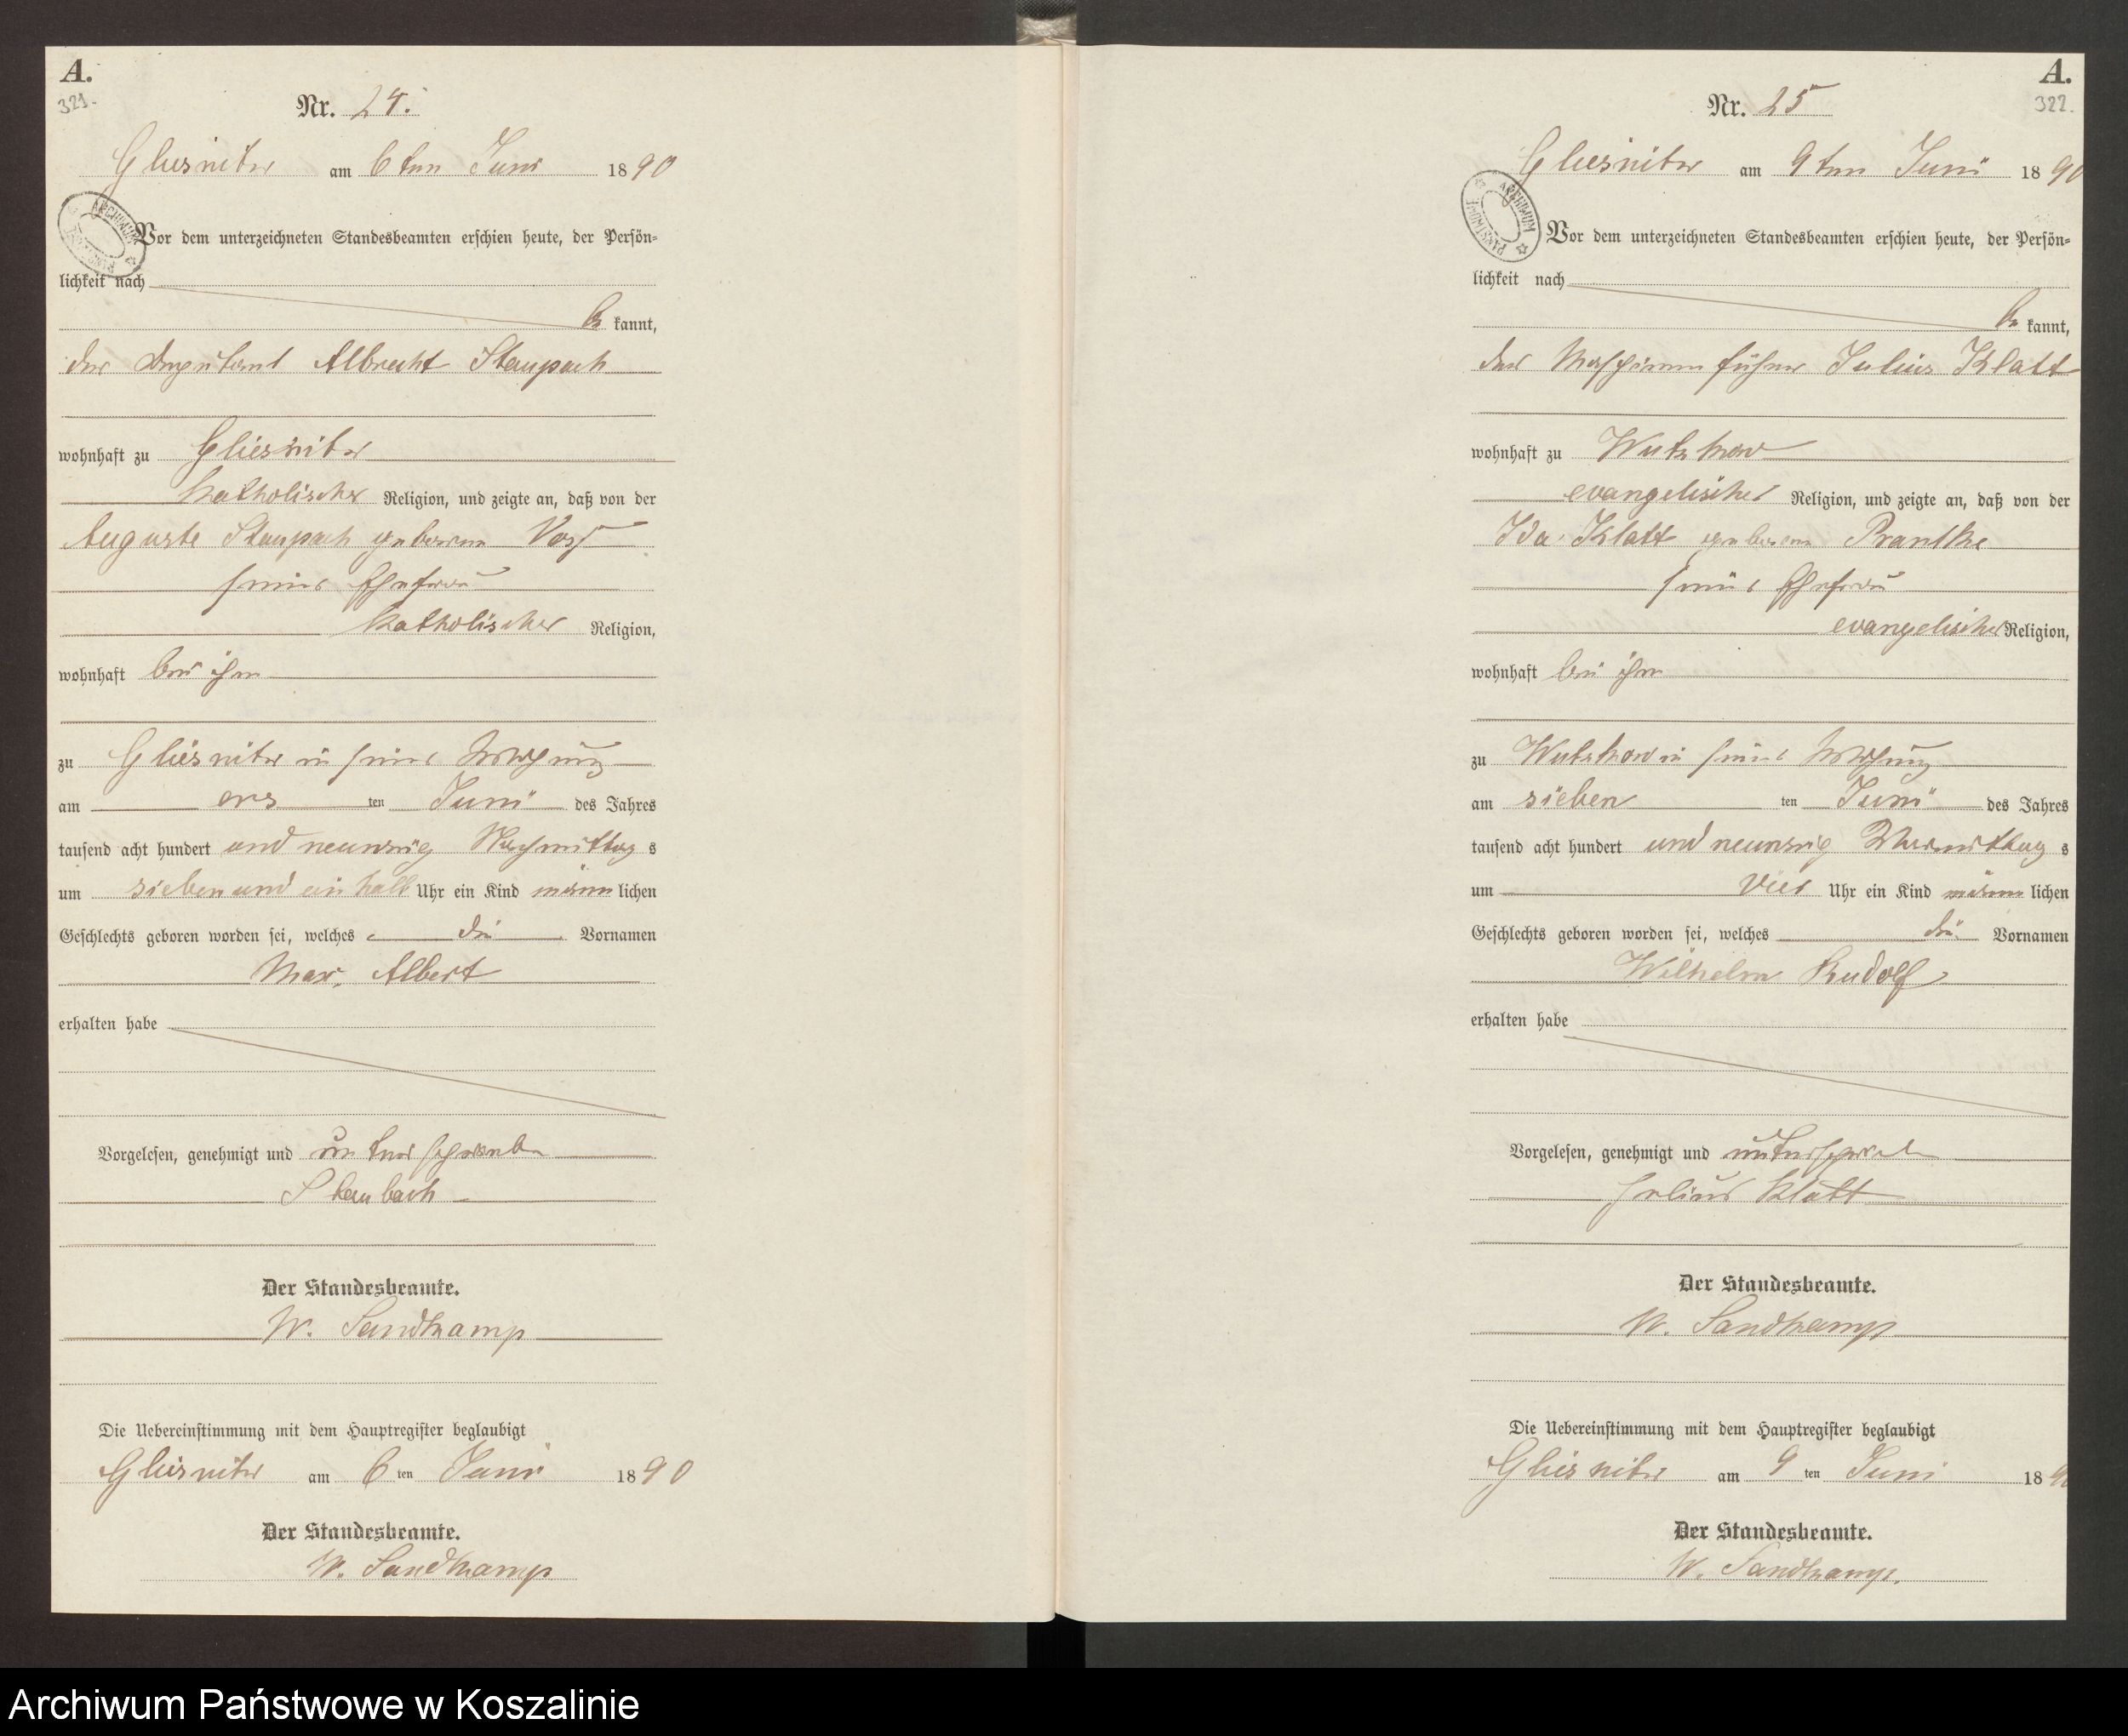 A.
321.
Nr. 24.
Gliesnitz am 6ten Juni 1890
Vor dem unterzeichneten Standesbeamten erschien heute, der Persön-
lichkeit nach
be kannt,
der Deputant Albrecht Staupach
wohnhaft zu Gliesnitz
katholischer Religion, und zeigte an, daß von der
Auguste Staupach geborene Voß
seiner Ehefrau
katholischer Religion,
wohnhaft bei ihm
zu Gliesnitz in seiner Wohnung
am ers ten Juni des Jahres
tausend acht hundert und neunzig Nachmittag s
um sieben und ein halb Uhr ein Kind männ lichen
Geschlechts geboren worden sei, welches die Vornamen
Max, Albert
erhalten habe
Vorgelesen, genehmigt und unterschrieben
Staubach
Der Standesbeamte.
W. Sandkamp
Die Uebereinstimmung mit dem Hauptregister beglaubigt
Gliesnitz am 6 ten Juni 1890
Der Standesbeamte.
W. Sandkamp
A.
322.
Nr. 25
Gliesnitz am 9ten Juni 1890
ARCHIWUM PAŃSTWOWE
Vor dem unterzeichneten Standesbeamten erschien heute, der Persön-
lichkeit nach
be kannt,
der Maschinenführer Julius Klatt
wohnhaft zu Wutzkow
evangelischer Religion, und zeigte an, daß von der
Ida Klatt geborene Prantke
seiner Ehefrau
evangelischer Religion,
wohnhaft bei ihm
zu Wutzkow in seiner Wohnung
am sieben ten Juni des Jahres
tausend acht hundert und neunzig Vormittag s
um vier Uhr ein Kind männ lichen
Geschlechts geboren worden sei, welches die Vornamen
Wilhelm Rudolf
erhalten habe
Vorgelesen, genehmigt und unterschrieben
Julius Klatt
Der Standesbeamte.
W. Sandkamp
Die Uebereinstimmung mit dem Hauptregister beglaubigt
Gliesnitz am 9 ten Juni 1890
Der Standesbeamte.
W. Sandkamp.
Archiwum Państwowe w Koszalinie